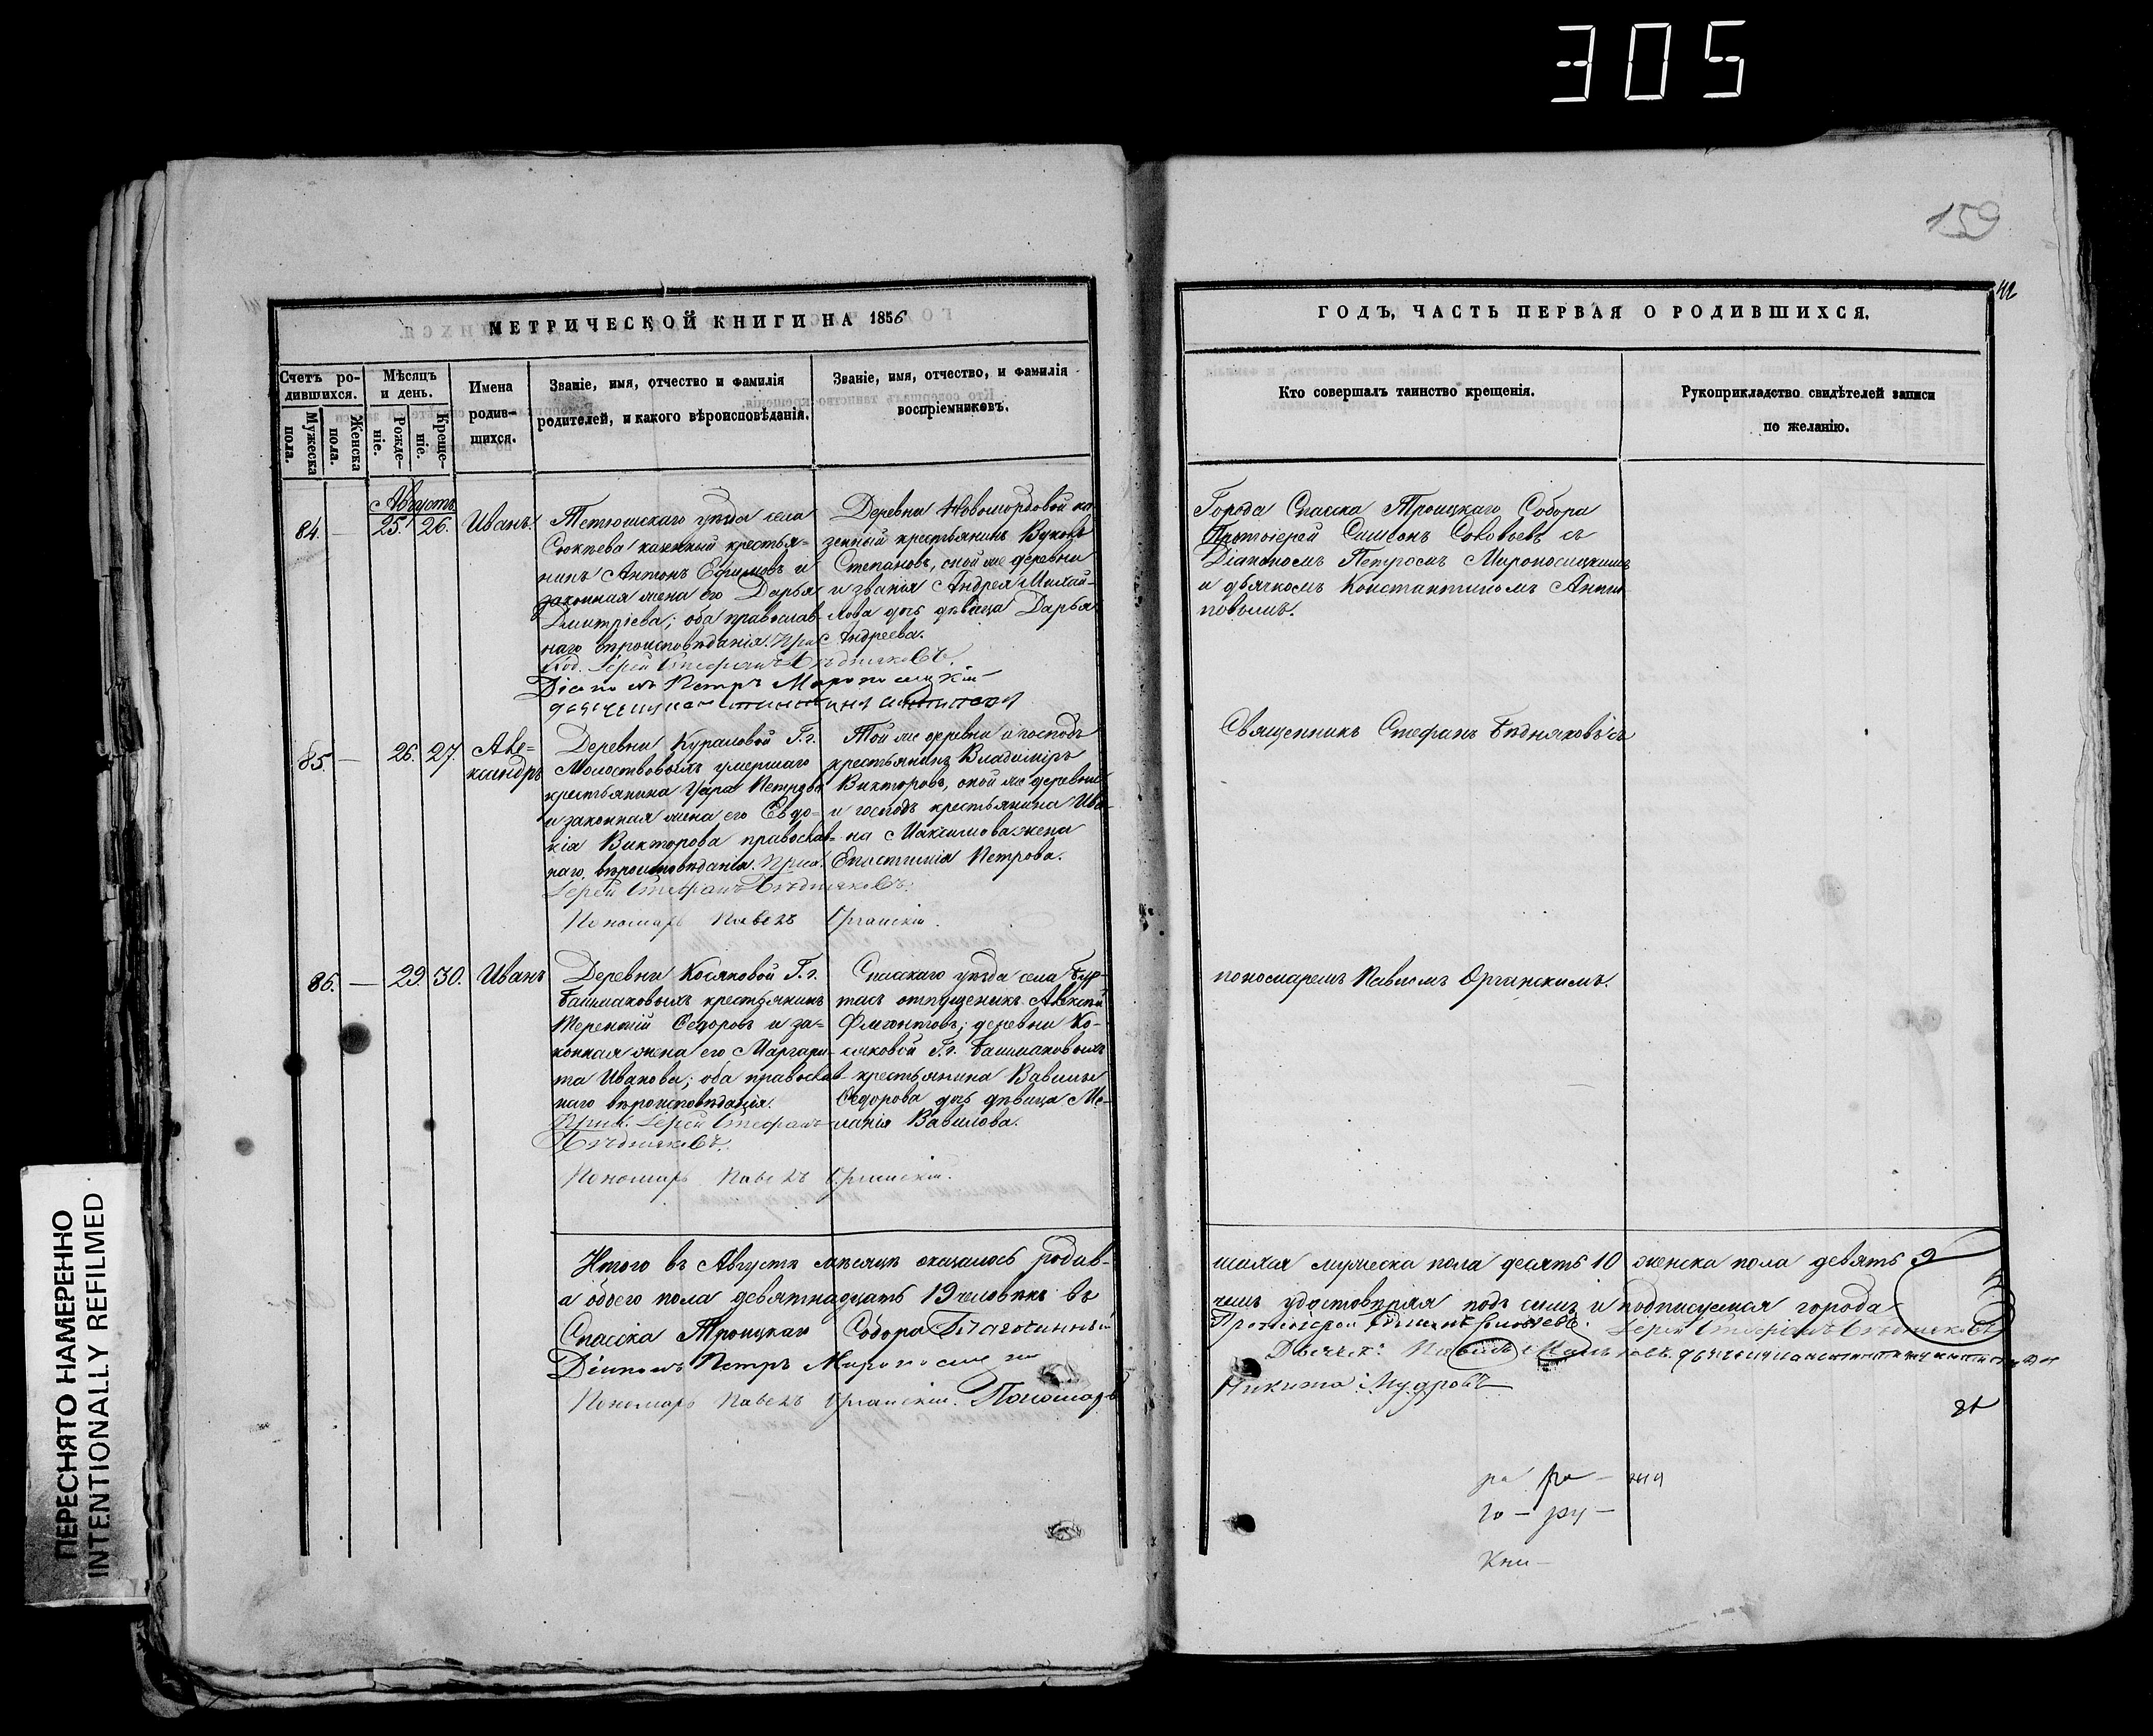 305
159
42
МЕТРИЧЕСКОЙ КНИГИ НА 1856
Счетъ родившихся.
Мужеска пола.
Женска пола.
Мѣсяцъ и день.
Рожденіе.
Крещеніе.
Имена родившихся.
Званіе, имя, отчество и фамилія
родителей, и какого вѣроисповѣданія.
Званіе, имя, отчество, и фамилія
воспріемниковъ.
Августъ
84. — 25. 26. Иванъ.
Тетюшскаго уѣзда села
Сюкѣева казенный крестья=
нинъ Антонъ Ефимовъ и
законная жена его Дарья
Дмитріева; оба православ-
наго вѣроисповѣданія.
Іерей Стефанъ Бѣдняковъ.
Діаконъ Петръ Мироносицкій
Деревни Новомордовой ка
зенный крестьянинъ
Степановъ, оной же деревни
и званія Андрея Михай-
лова дочь дѣвица Дарья
Андреева.
85. — 26. 27. Але=
ксандръ
Деревни Кураловой Г.г.
Молоствовыхъ умершаго
крестьянина Петрова
и законная жена его Евдо=
кія Викторова православ=
наго вѣроисповѣданія.
Іерей Стефанъ Бѣдняковъ.
Пономарь Павелъ Органскій.
Той же деревни и господъ
крестьянинъ Владиміръ
Викторовъ, оной же деревни
и господъ крестьянина Ива-
на Максимова жена
Епистимія Петрова.
86. — 29. 30. Иванъ
Деревни Косяковой Г.г.
Башмаковыхъ крестьянинъ
Терентій Ѳедоровъ и за=
конная жена его Маргари-
та Иванова; оба православ-
наго вѣроисповѣданія.
Іерей Стефанъ
Бѣдняковъ.
Пономарь Павелъ Органскій.
Спасскаго уѣзда села
отпущеникъ Алексѣй
деревни Ко-
сяковой Г.г. Башмаковыхъ
крестьянина Вавилы
Ѳедорова дочь дѣвица Ме-
ланія Вавилова.
Итого въ Августѣ мѣсяцѣ оказалось родив-
а обоего пола девятнадцать 19 человѣкъ въ
Спасска Троицкаго Собора Благочинный
Діаконъ Петръ
Пономарь Павелъ Органскій. Пономарь
ГОДЪ, ЧАСТЬ ПЕРВАЯ О РОДИВШИХСЯ.
Кто совершалъ таинство крещенія.
Рукоприкладство свидѣтелей записи
по желанію.
Города Спасска Троицкаго Собора
Протоіерей Симеонъ Соловьевъ съ
Діакономъ Петромъ Мироносицкимъ
и дьячкомъ Константиномъ Анти
повымъ.
Священникъ Стефанъ Бѣдняковъ съ
пономаремъ Павломъ Органскимъ.
шихся мужеска пола десять 10 женска пола девять 9
чемъ удостовѣряя подъ симъ и подписуемся города
Протоіерей Симеонъ Соловьевъ. Іерей Стефанъ Бѣдняковъ
Никита Мудровъ
го — ру —
Кни —
ПЕРЕСНЯТО НАМЕРЕННО
INTENTIONALLY REFILMED